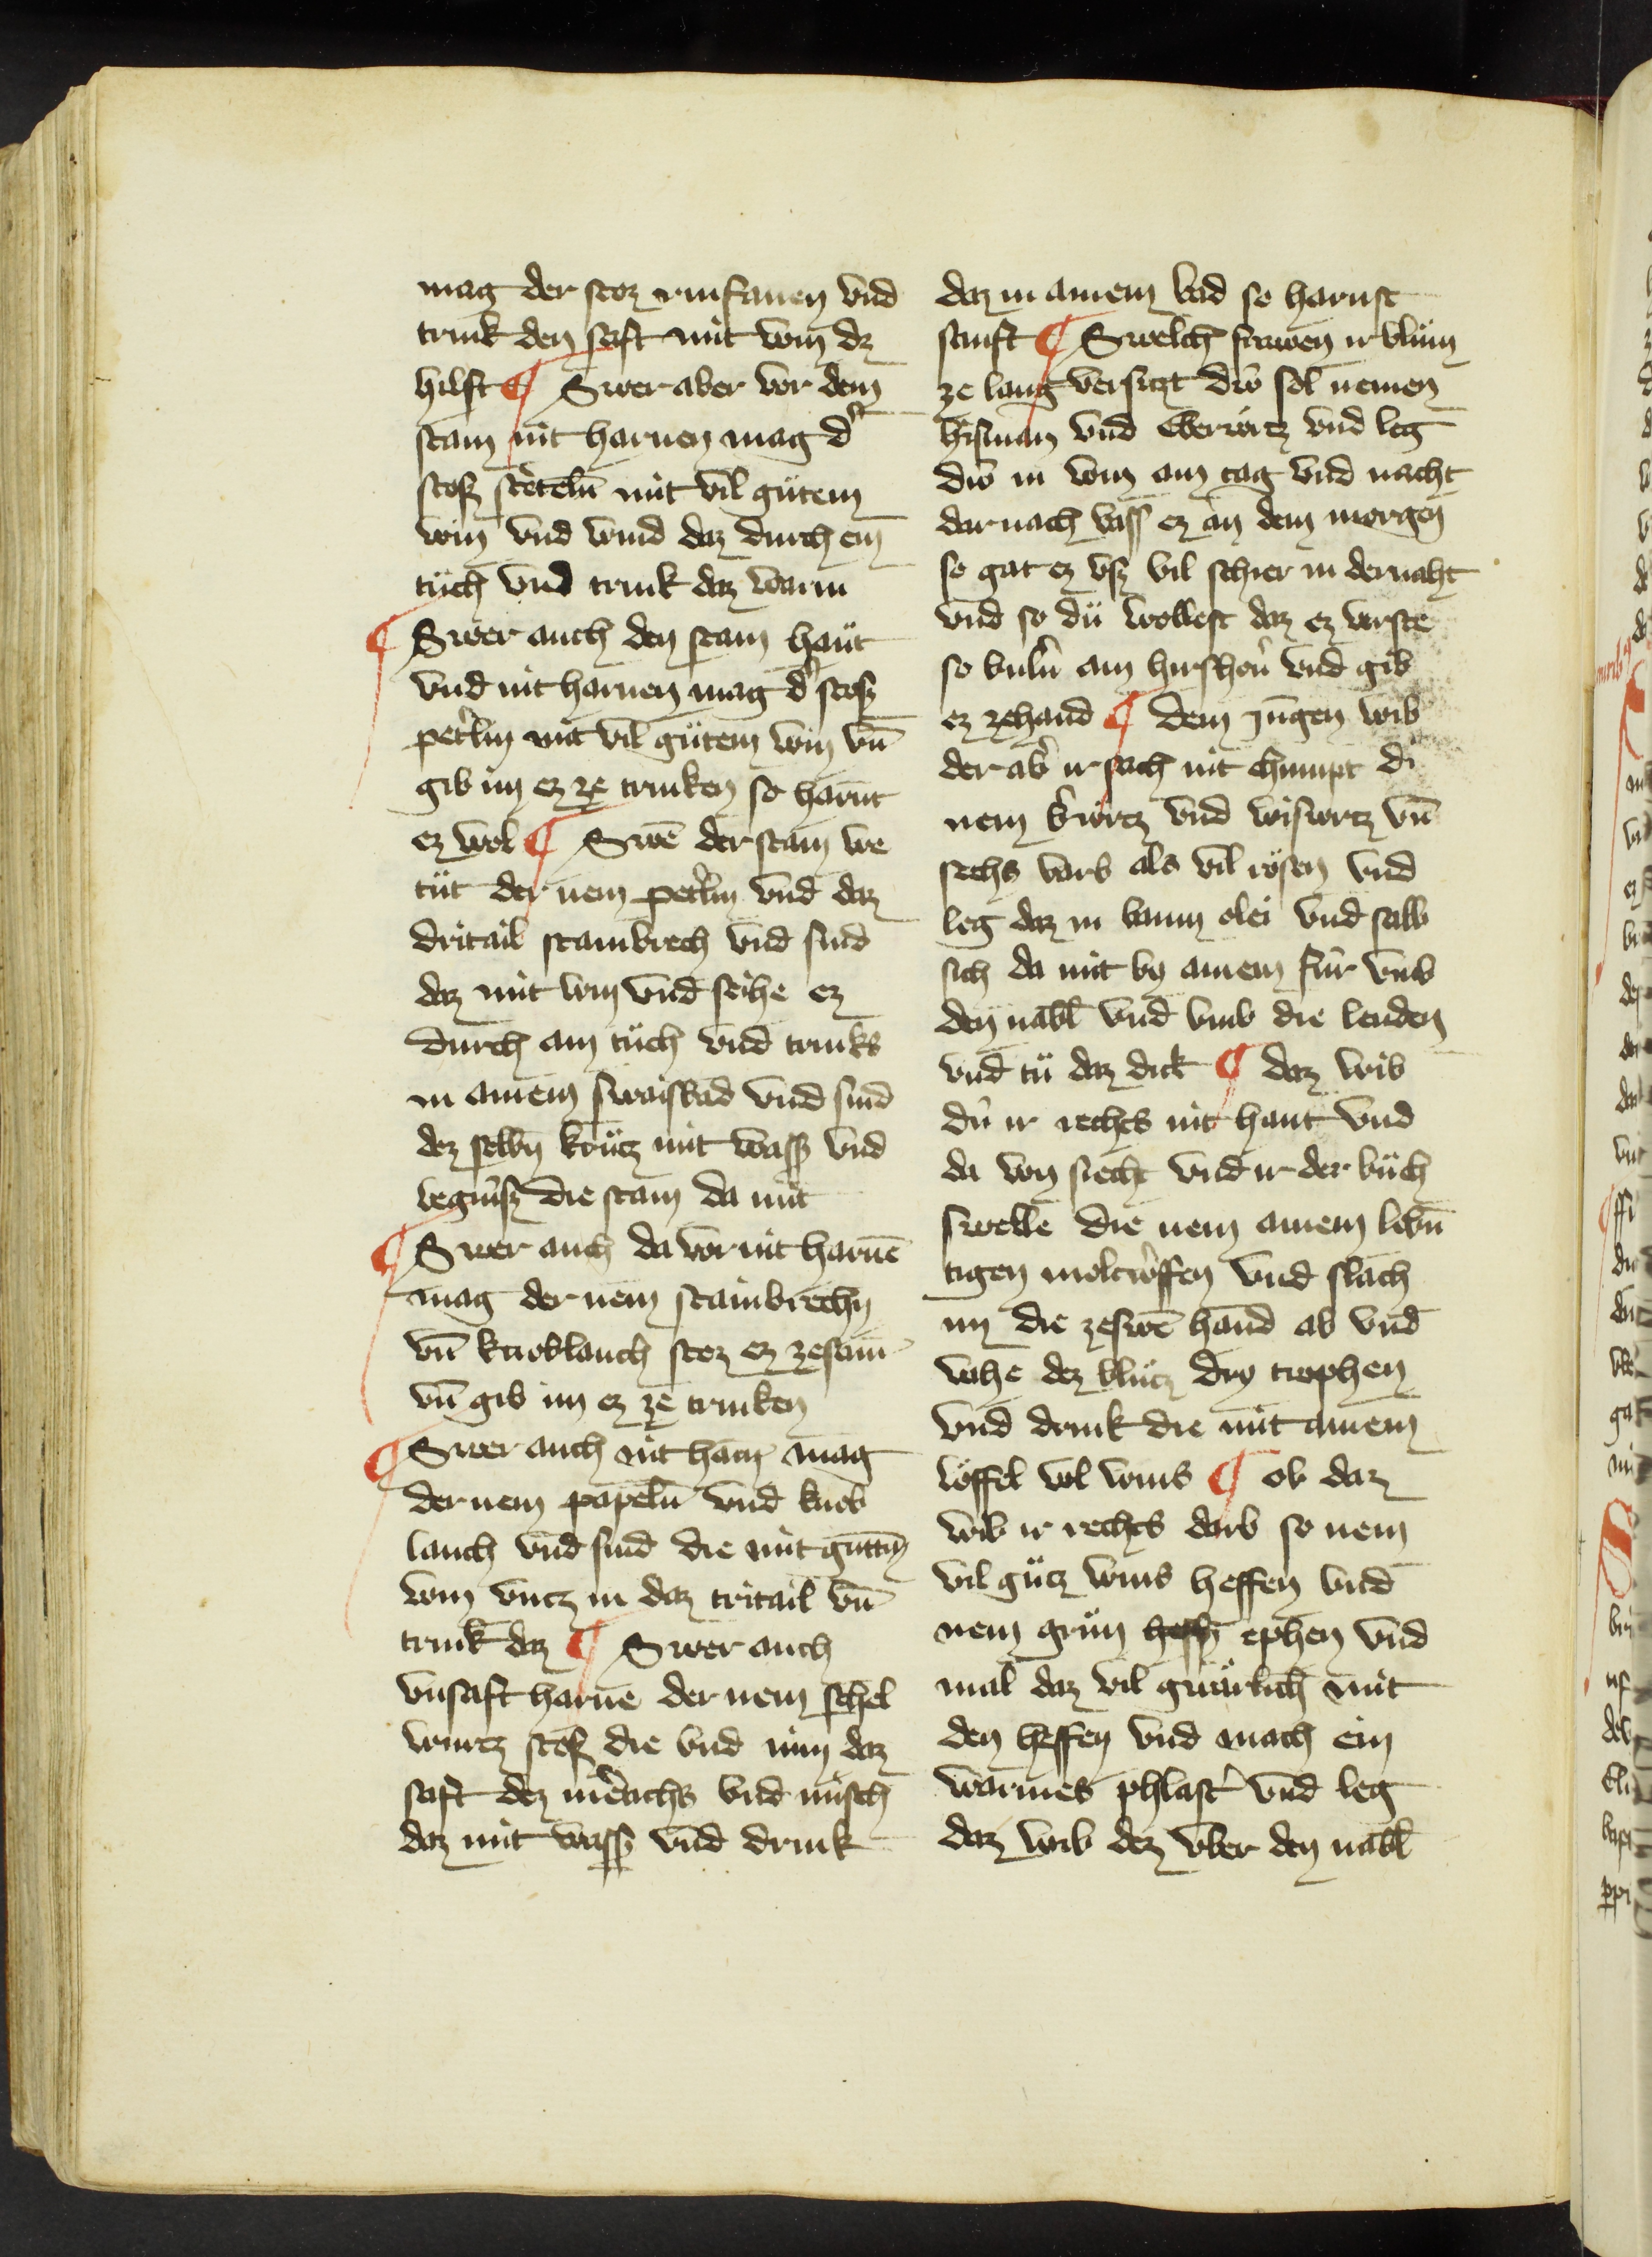 mag der stoz rinfanen vnd
trink den saft mit win dz
hilft ¶ Swer aber vor dem
stain nit harnen mag dˢ
stosz stetelin̄ mit vil gütem
win vnd wind daz durch ein
tüch vnd trink daz warm
¶ Swer auch den stain haut
vnd nit harnen mag dˢ stosz
pet'lin mit vil gütem win vn̄
gib im ez ze trinken so harnt
ez wol ¶ Swē der stain we
tüt der nem pet'lin vnd daz
dritail stainbrech vnd sind
daz mit win vnd seihe ez
durch ain tüch vnd trinks
in ainem swaisbad vnd sind
dez selbn̄ krütz mit wasz vnd
begiusz die stain da mit
¶ Swer auch da vor nit harnē
mag der nem stainbrechn
vn̄ knoblauch stoz ez zesam̄
vn̄ gib im ez ze trinken
¶ Swer auch nit harn mag
der nem papeln̄ vnd knob
lauch vnd sind die mit guttm̄
win vncz in daz tritail vn̄
trink daz ¶ Swer auch
vnsaft harne der nem schel
wurtz stosz die vnd nim daz
saft dez m'rachs vnd misch
daz mit wasz vnd drink
daz in ainem bad so harnst
sanft ¶ Swelch frawen ir blüm
ze lang versitzt diw sol nemen
hirsman vnd Eberwrtz vnd leg
diw in win ain tag vnd nacht
dar nach vass ez an dem morgen
so gat ez vsz vil schier in der naht
vnd so dü wollest daz ez verste
so buln̄ ain hirshorn̄ vnd gib
ez zehand ¶ dem jungen wib
der ab' ir sach nit chumpt di
nem b'wrtz vnd wiswrtz vn̄
sechs varb als vil rösen vnd
leg daz in baum olei vnd salb
sich da mit by ainem fiur vmb
den nabl vnd vmb die lenden
vnd tü daz dick ¶ daz wib
diu ir rechts nit haut vnd
da von siecht vnd ir der büch
swelle die nem ainem lebn̄
tigen moltwˢffen vnd slach
im die zeswē hand ab vnd
vahe dez blütz dry trophen
vnd drink die mit ainem
löffel vol wins ¶ ob daz
wib ir rechts darb so nem
vil gütz wins heffen vnd
nem grün ephen vnd
mal daz vil gnärlich mit
den heffen vnd mach ein
warmes phlast' vnd leg
daz wib dez vber den nabl